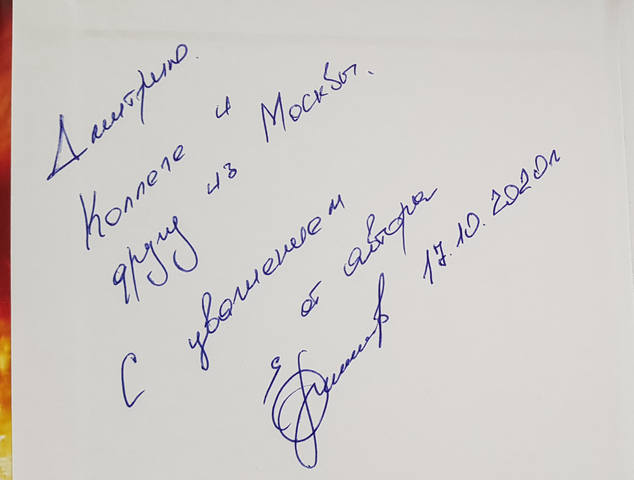 Дмитрию.
Коллеге и
другу из Москвы.
С уважением
от автора
17.10.2020г